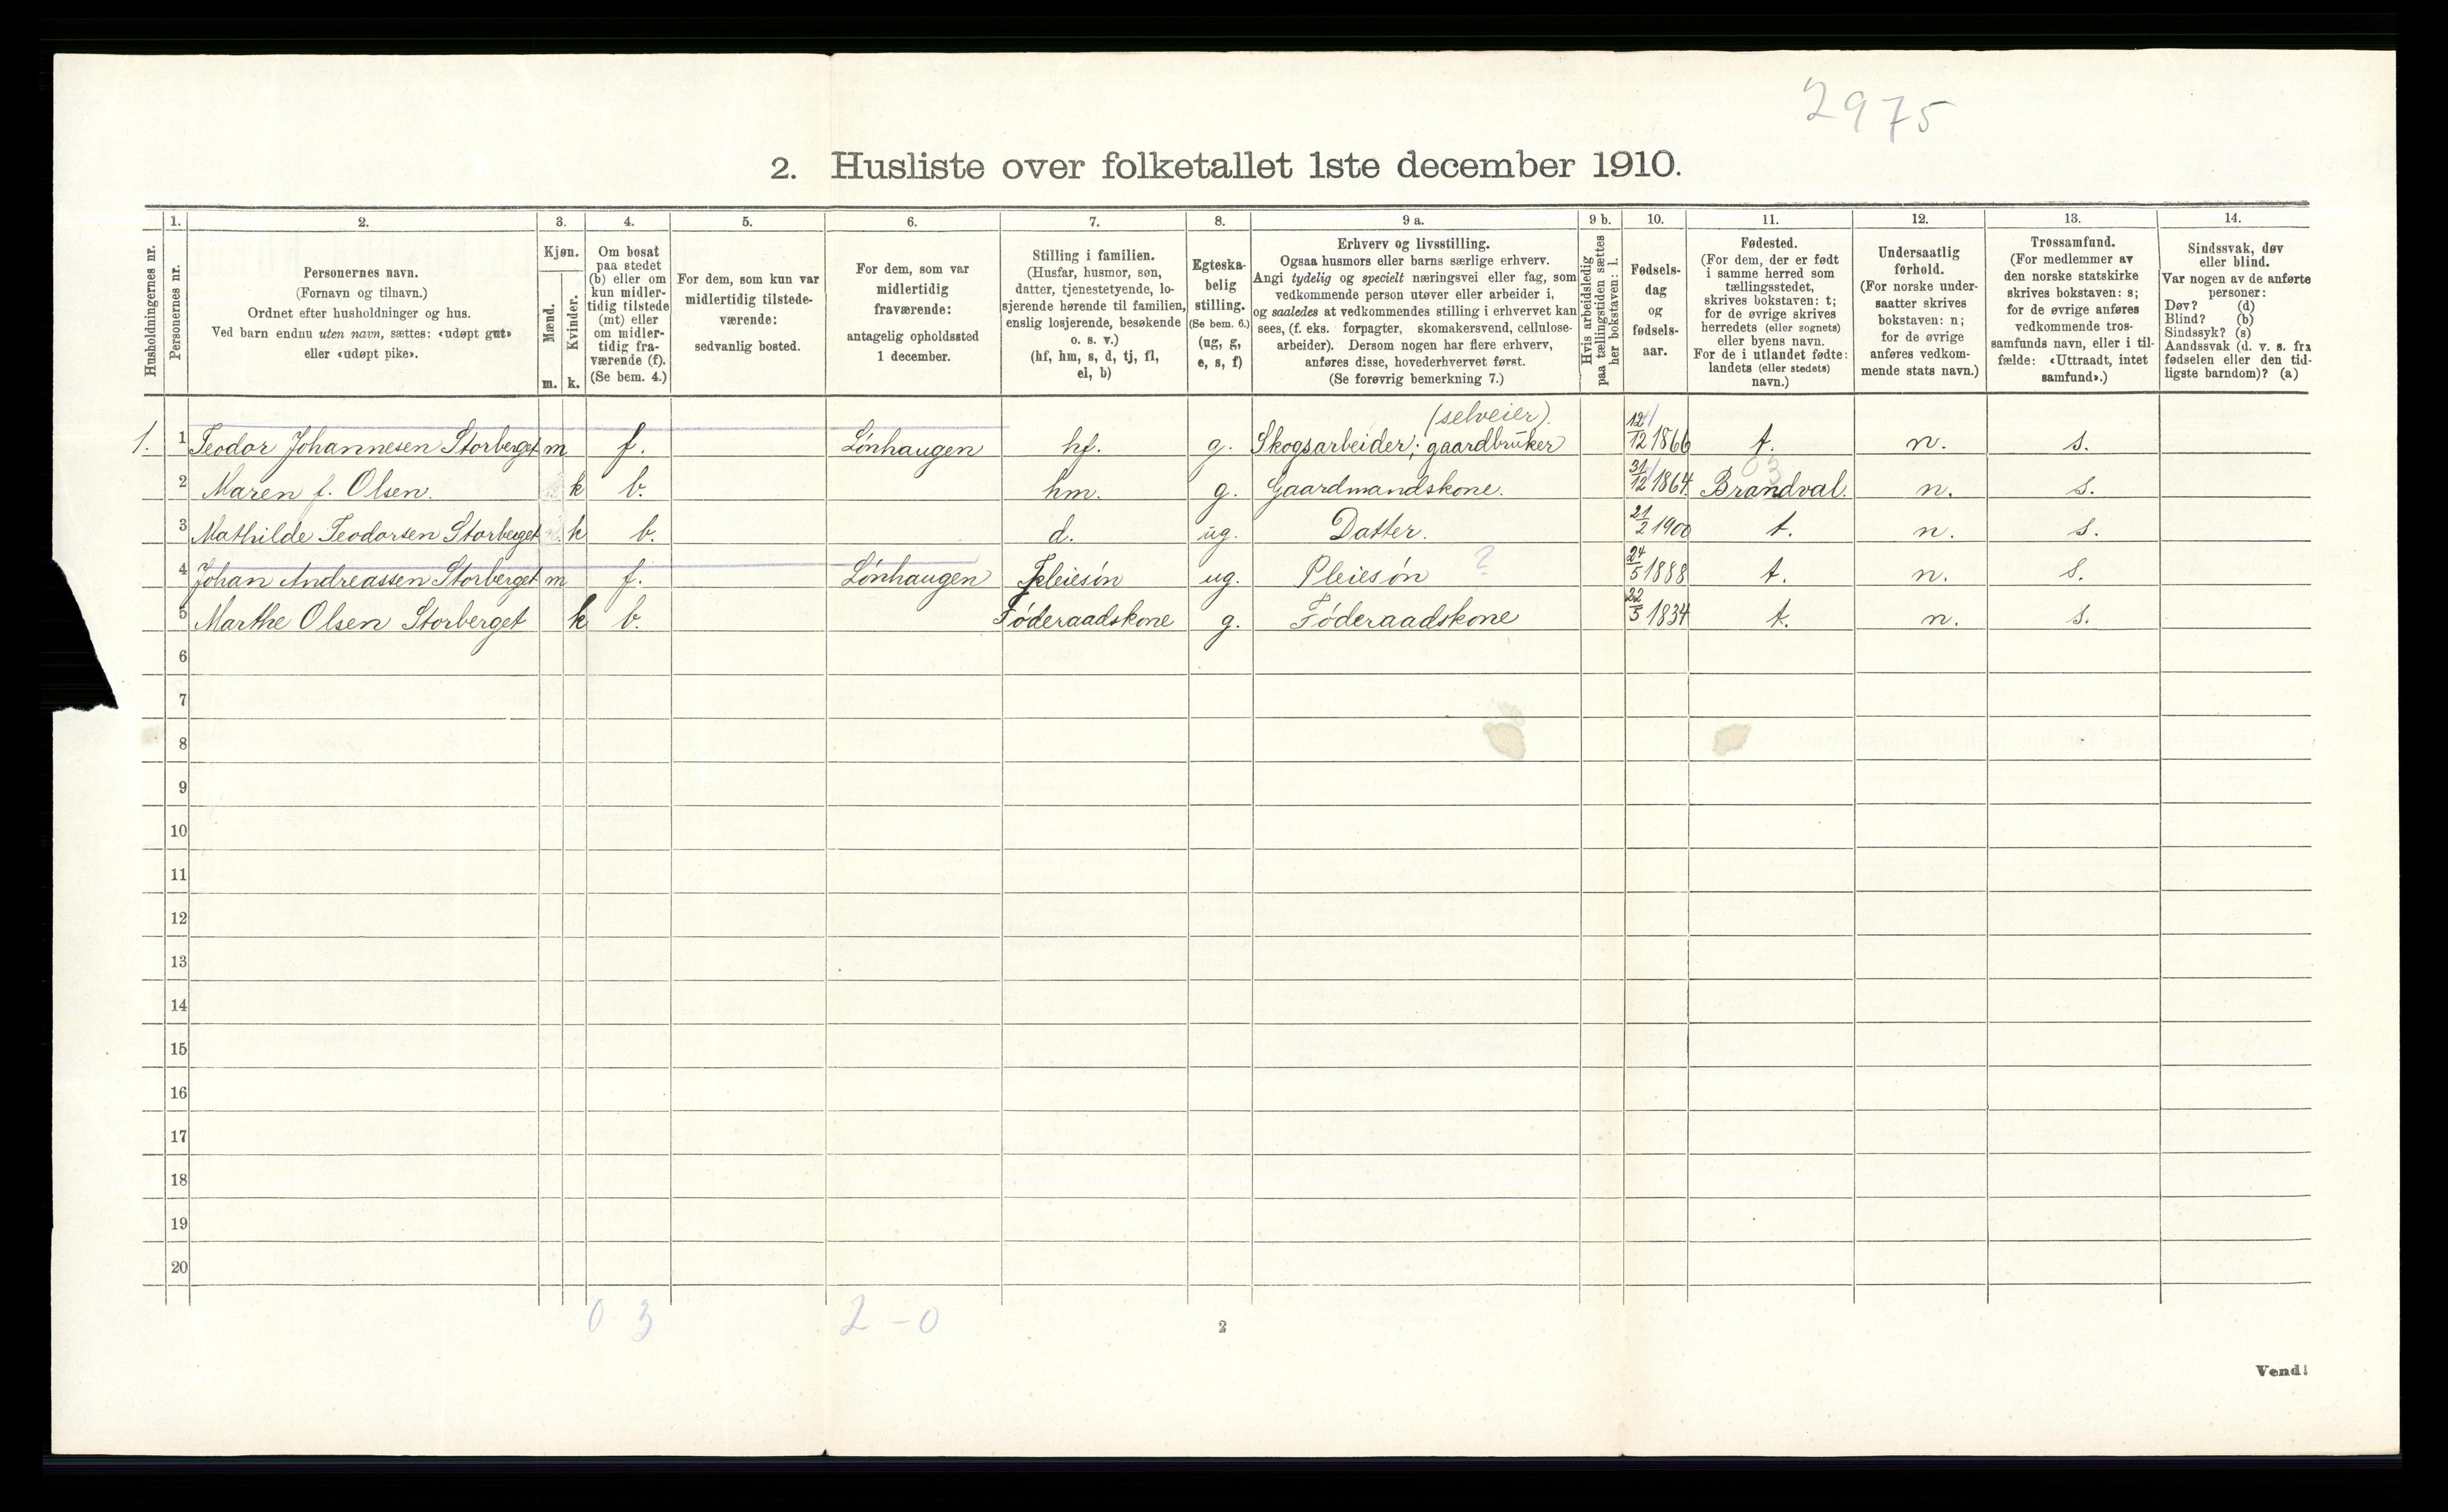 2975
2. Husliste over folketallet 1ste december 1910.
Husholdningernes nr.
1. Personernes nr.
2. Personernes navn. (Fornavn og tilnavn.) Ordnet efter husholdninger og hus. Ved barn endnu uten navn, sættes: «udøpt gut» eller «udøpt pike».
3. Kjøn. Mænd. m. Kvinder. k.
4. Om bosat paa stedet (b) eller om kun midlertidig tilstede (mt) eller om midlertidig fraværende (f). (Se bem. 4.)
5. For dem, som kun var midlertidig tilstedeværende: sedvanlig bosted.
6. For dem, som var midlertidig fraværende: antagelig opholdssted 1 december.
7. Stilling i familien. (Husfar, husmor, søn, datter, tjenestetyende, losjerende hørende til familien, enslig losjerende, besøkende o. s. v.) (hf, hm, s, d, tj, fl, el, b)
8. Egteskabelig stilling. (Se bem. 6.) (ug, g, e, s, f)
9 a. Erhverv og livsstilling. Ogsaa husmors eller barns særlige erhverv. Angi tydelig og specielt næringsvei eller fag, som vedkommende person utøver eller arbeider i, og saaledes at vedkommendes stilling i erhvervet kan sees, (f. eks. forpagter, skomakersvend, cellulosearbeider). Dersom nogen har flere erhverv, anføres disse, hovederhvervet først. (Se forøvrig bemerkning 7.)
9 b. Hvis arbeidsledig paa tællingstiden sættes her bokstaven: l.
10. Fødselsdag og fødselsaar.
11. Fødested. (For dem, der er født i samme herred som tællingsstedet, skrives bokstaven: t; for de øvrige skrives herredets (eller sognets) eller byens navn. For de i utlandet fødte: landets (eller stedets) navn.)
12. Undersaatlig forhold. (For norske undersaatter skrives bokstaven: n; for de øvrige anføres vedkommende stats navn.)
13. Trossamfund. (For medlemmer av den norske statskirke skrives bokstaven: s; for de øvrige anføres vedkommende trossamfunds navn, eller i tilfælde: «Uttraadt, intet samfund».)
14. Sindssvak, døv eller blind. Var nogen av de anførte personer: Døv? (d) Blind? (b) Sindssyk? (s) Aandssvak (d. v. s. fra fødselen eller den tidligste barndom)? (a)
(selveier).
1. 1 Teodor Johannesen Storberget m f. Lönhaugen hf. g. Skogsarbeider; gaardbrüker 12/12 1866 t. n. s.
03
2 Maren f. Olsen. k b. hm. g. Gaardmandskone. 31/12 1864 Brandval. n. s.
3 Mathilde Teodorsen Storberget k b. d. ug. Datter. 21/2 1900 t. n. s.
4 Johan Andreassen Storberget m f. Lönhaugen Pleiesön ug. Pleiesön ? 24/5 1888 t. n. s.
5 Marthe Olsen Storberget k b. Föderaadskone g. Föderaadskone 22/5 1834 t. n. s.
6
7
8
9
10
11
12
13
14
15
16
17
18
19
20
0 3 2 - 0
2
Vend!